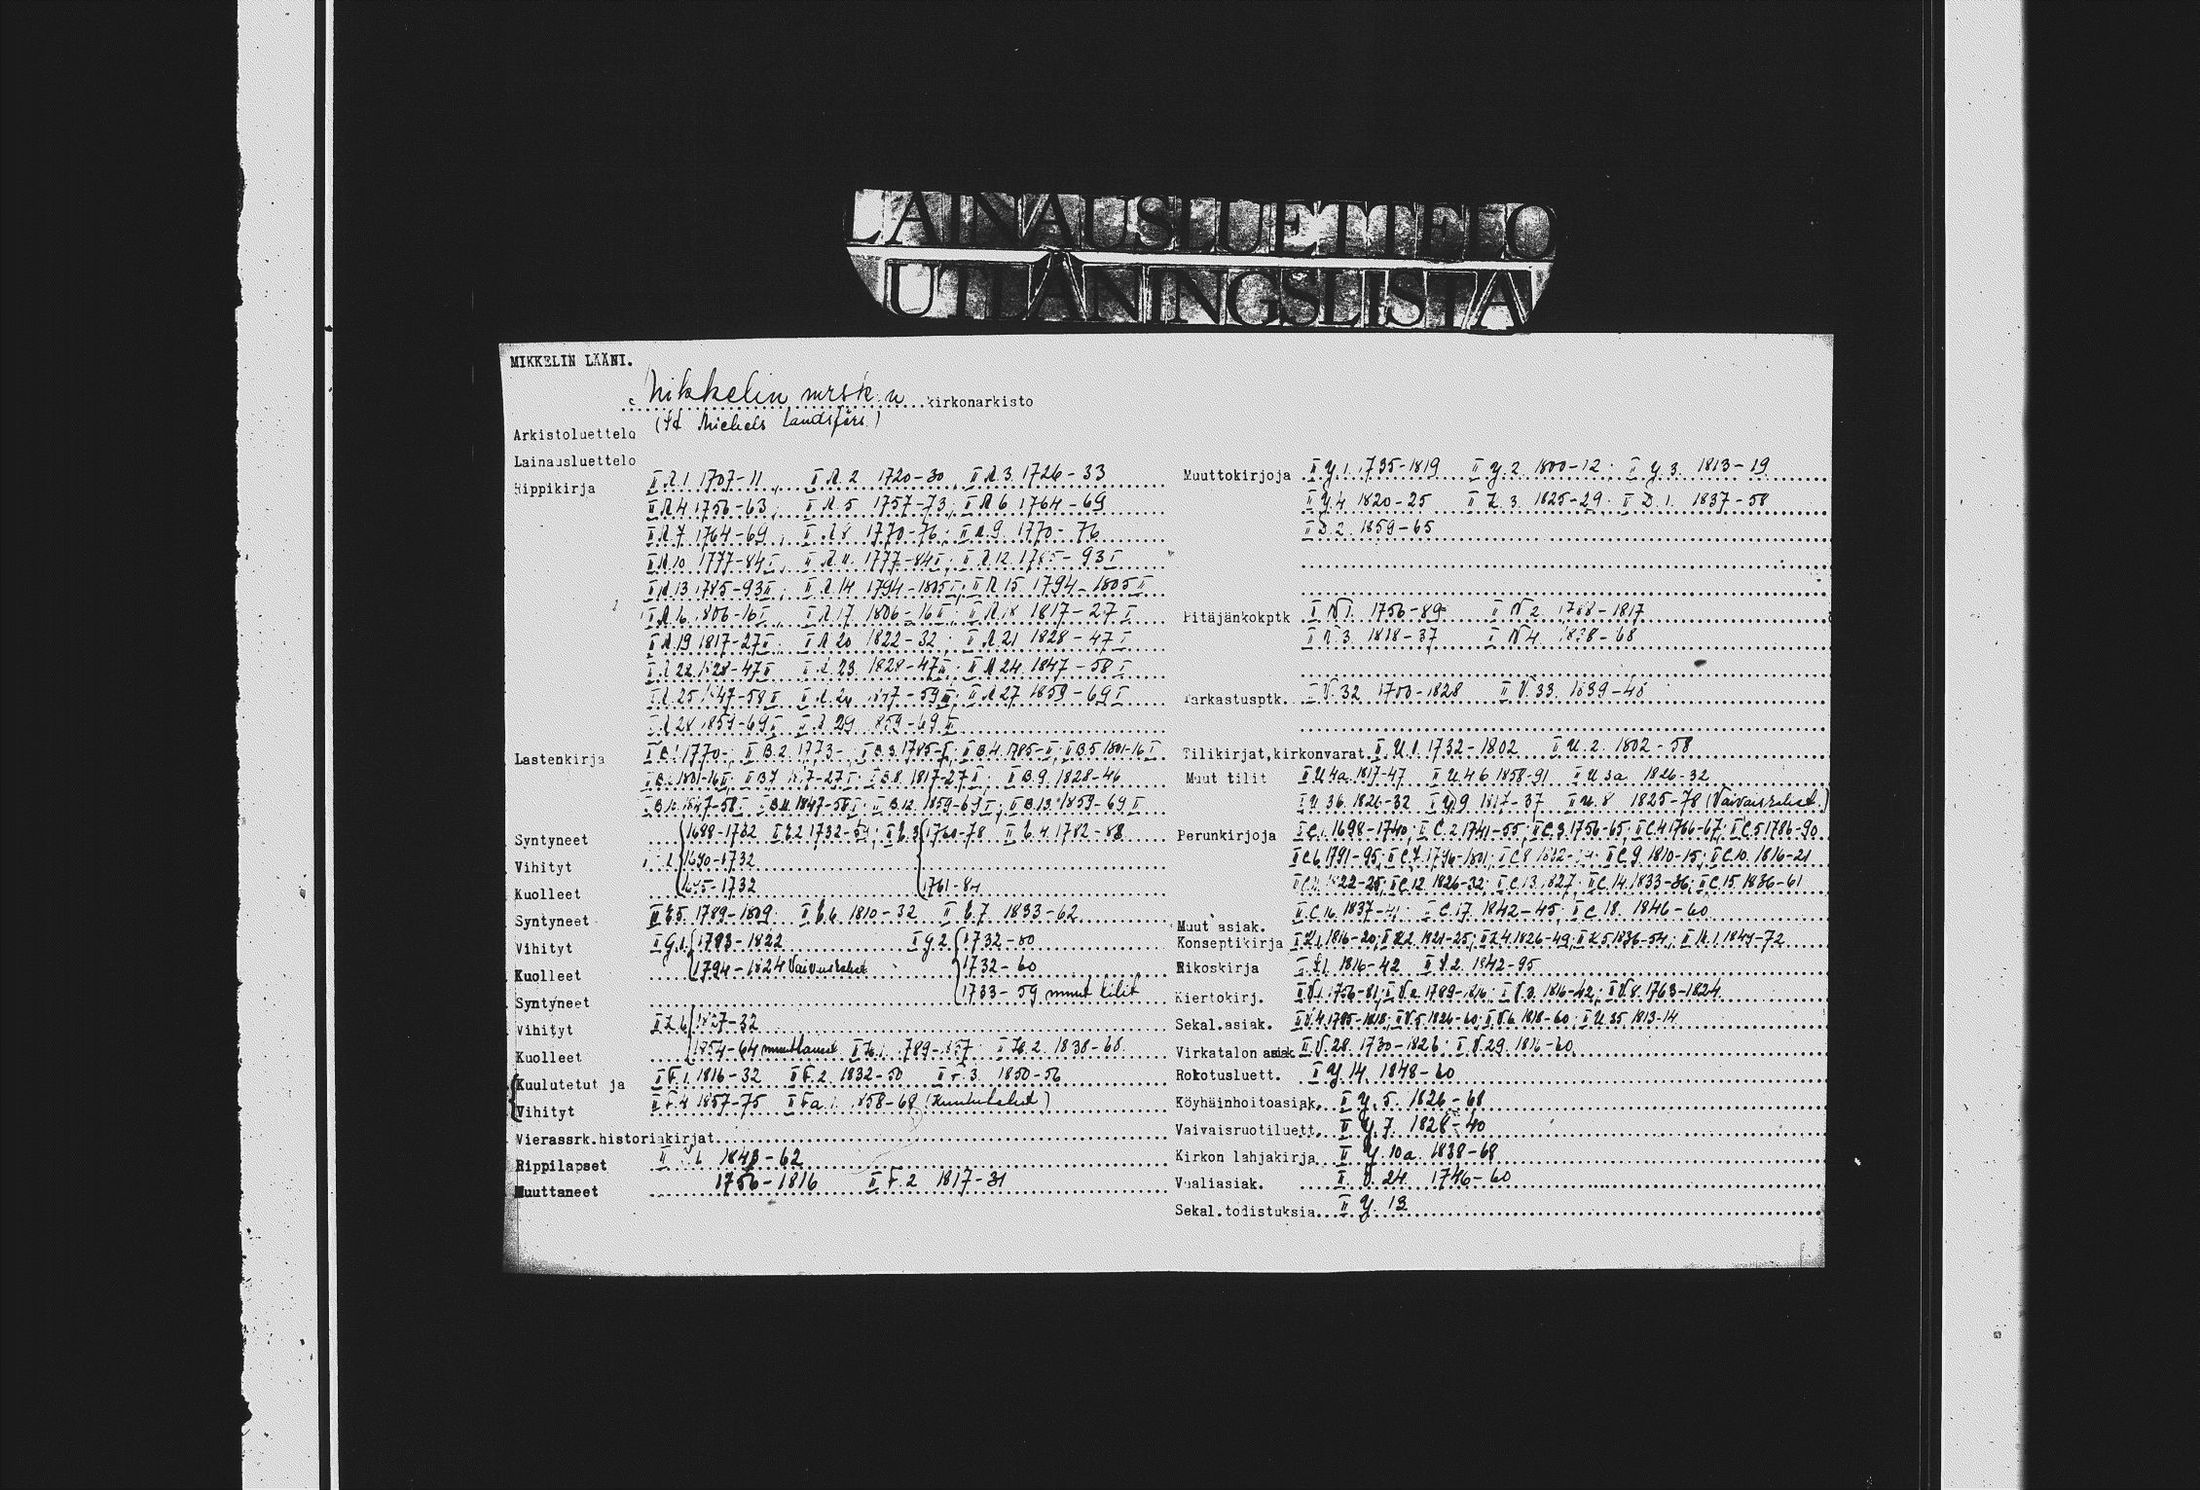 LAINAUSLUETTELO
UTLÅNINGSLISTA
MIKKELIN LÄÄNI.
Mikkelin mrsk:n kirkonarkisto
(St Michels Landsförs.)
Arkistoluettelo
Lainausluettelo
Rippikirja II A.1 1707-11, II A.2 1720-30, II A.3 1726-33
II A.4 1756-63; II A.5 1757-73; II A.6 1764-69
II A.7 1764-69; II A.8 1770-76; II A.9 1770-76
II A.10 1777-84 I, II A.11 1777-84 I; II A.12 1785-93 I
II A.13 1785-93 II; II A.14 1794-1805 I; II A.15 1794-1805 II
II A.16 1806-16 I, II A.17 1806-16 II; II A.18 1817-27 I
II A.19 1817-27 II II A.20 1822-32; II A.21 1828-47 I
II A.22 1828-47 II II A.23 1828-47 II; II A.24 1847-58 I
II A.25 1847-58 II II A.26 1847-59 III; II A.27 1859-69 I
II A.28 1859-69 II II A.29 1859-69 III
Lastenkirja II B.1 1770-; II B.2. 1773-, II B.3. 1785-I; II B.4. 1785-II; II B.5 1801-16 I
II B.6 1801-16 II; II B.7 1817-27 I; II B.8. 1817-27 II; II B.9. 1828-46
II B.10 1847-58 I II B.11. 1847-58 II; II B.12. 1859-69 I; II B.13. 1859-69 II
Syntyneet 1688-1732 1732- 1760-78 1782-88
Vihityt 1690-1732
Kuolleet 1695-1732 1761-
Syntyneet 1789-1809 1810-32 1833-62
Vihityt II G.1. 1793-1822 II G.2. 1732-80
Kuolleet 1794-1824 1732-60
Syntyneet 1733-59 muut tilit
Vihityt 1827-32
Kuolleet 1854-64 1838-68
Kuulutetut ja II F.1. 1816-32 II F.2. 1832-50 II F.3. 1850-56
Vihityt II F.4 1857-75 II Fa.1. 1858-68
Vierassrk.historiakirjat
Rippilapset 1843-62
Muuttaneet 1756-1816 II F.2 1817-31
Muuttokirjoja II Y.1. 1795-1819 II Y.2. 1800-12; II Y.3. 1813-19
II Y.4. 1820-25 II Z.3. 1825-29; II D.1. 1837-58
II D.2. 1859-65
Pitäjänkokptk II N 1. 1756-89 II N 2. 1788-1817
II N 3. 1818-37 II N 4. 1838-68
Tarkastusptk. II V.32 1700-1828 II V.33. 1839-48
Tilikirjat,kirkonvarat II U.1. 1732-1802 II U.2. 1802-58
Muut tilit II U 4a. 1817-47 II U.4 b 1858-91 II U 3a 1826-32
II U 3b. 1826-32 1817-37 II U.8 1825-78
Perunkirjoja II C.1. 1698-1740; II C.2. 1741-55; II C.3. 1756-65; II C.4 1766-67; II C.5 1786-90
II C.6 1791-95; II C.7. 1796-1801; II C.8 II C.9. 1810-15; II C.10. 1816-21
II C.11. 1822-25; II C.12. 1826-32; II C.13. 1827; II C.14. 1833-36; II C.15. 1836-61
II C.16 1837-41 II C.17. 1842-45; II C.18. 1846-60
Muut asiak.
Konseptikirja 1816-20; 1821-25; 1826-49; 1836-54;
Rikoskirja 1816-42 1842-95
Kiertokirj. II V.1. 1756-81; II V.2. 1789-1816; II V.3. 1816-42; II V.8. 1763-1824
Sekal.asiak. II V.4. 1785-1818; II V.5. 1826-60; II V.6. 1818-60; II U.35 1813-14
Virkatalon asiak II V.28. 1730-1826; II V.29. 1816-60
Rokotusluett. II Y.14. 1848-60
Köyhäinhoitoasiak. II Y.5. 1826-68
Vaivaisruotiluett. II Y.7. 1828-40
Kirkon lahjakirja II Y.10a. 1838-68
Vaaliasiak. II V.24. 1746-60
Sekal.todistuksia II Y.13